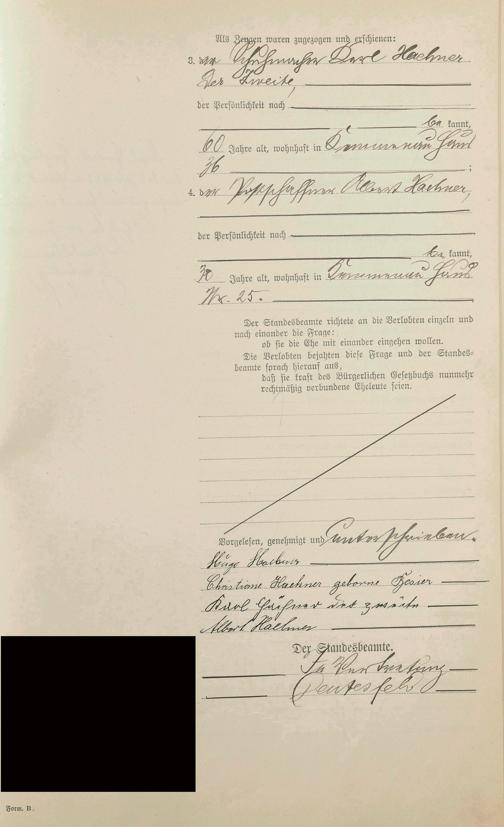 Als Zeugen waren zugezogen und erschienen:
3. der Schuhmacher Karl Haehner
der Zweite,
der Persönlichkeit nach
be kannt,
60 Jahre alt, wohnhaft in Kemmenau Haus
36 ;
4. der Postschaffner Albert Haehner,
der Persönlichkeit nach
be kannt,
30 Jahre alt, wohnhaft in Kemmenau Haus
Nr. 25.
Der Standesbeamte richtete an die Verlobten einzeln und
nach einander die Frage:
ob sie die Ehe mit einander eingehen wollen.
Die Verlobten bejahten diese Frage und der Standes-
beamte sprach hierauf aus,
daß sie kraft des Bürgerlichen Gesetzbuchs nunmehr
rechtmäßig verbundene Eheleute seien.
Vorgelesen, genehmigt und unterschrieben.
Hugo Haehner
Christiane Haehner geborne
Karl Hähner der zweite
Albert Haehner
Der Standesbeamte.
In Vertretung
Form. B.